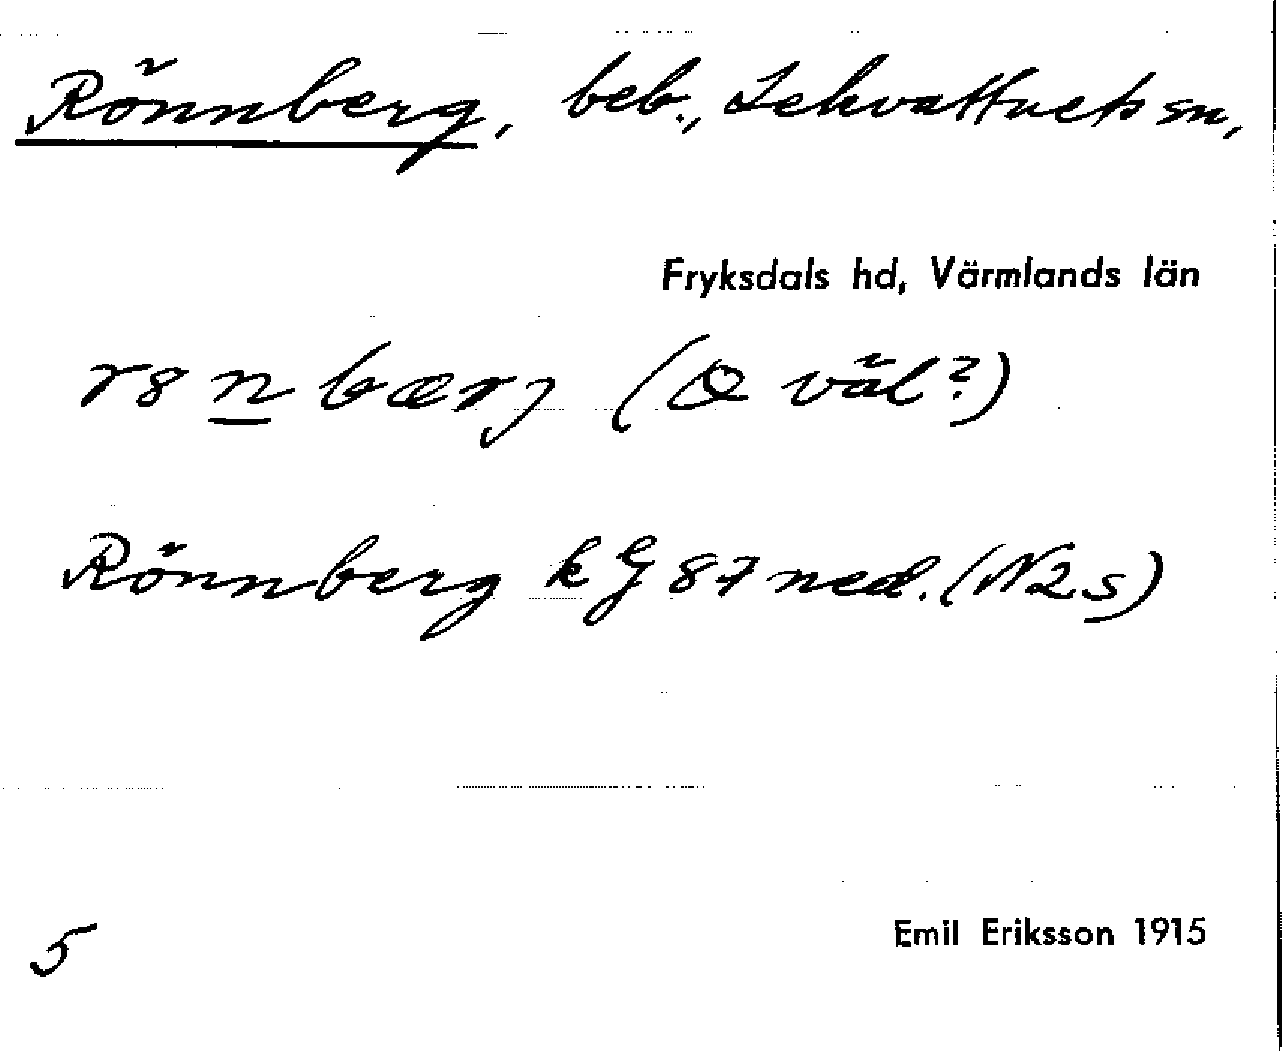 Rönnberg, beb., Lekvattnets sn,
Fryksdals hd, Värmlands län
r8n bærj (Q väl?)
Rönnberg k G 87 ned. (N2s)
5
Emil Eriksson 1915